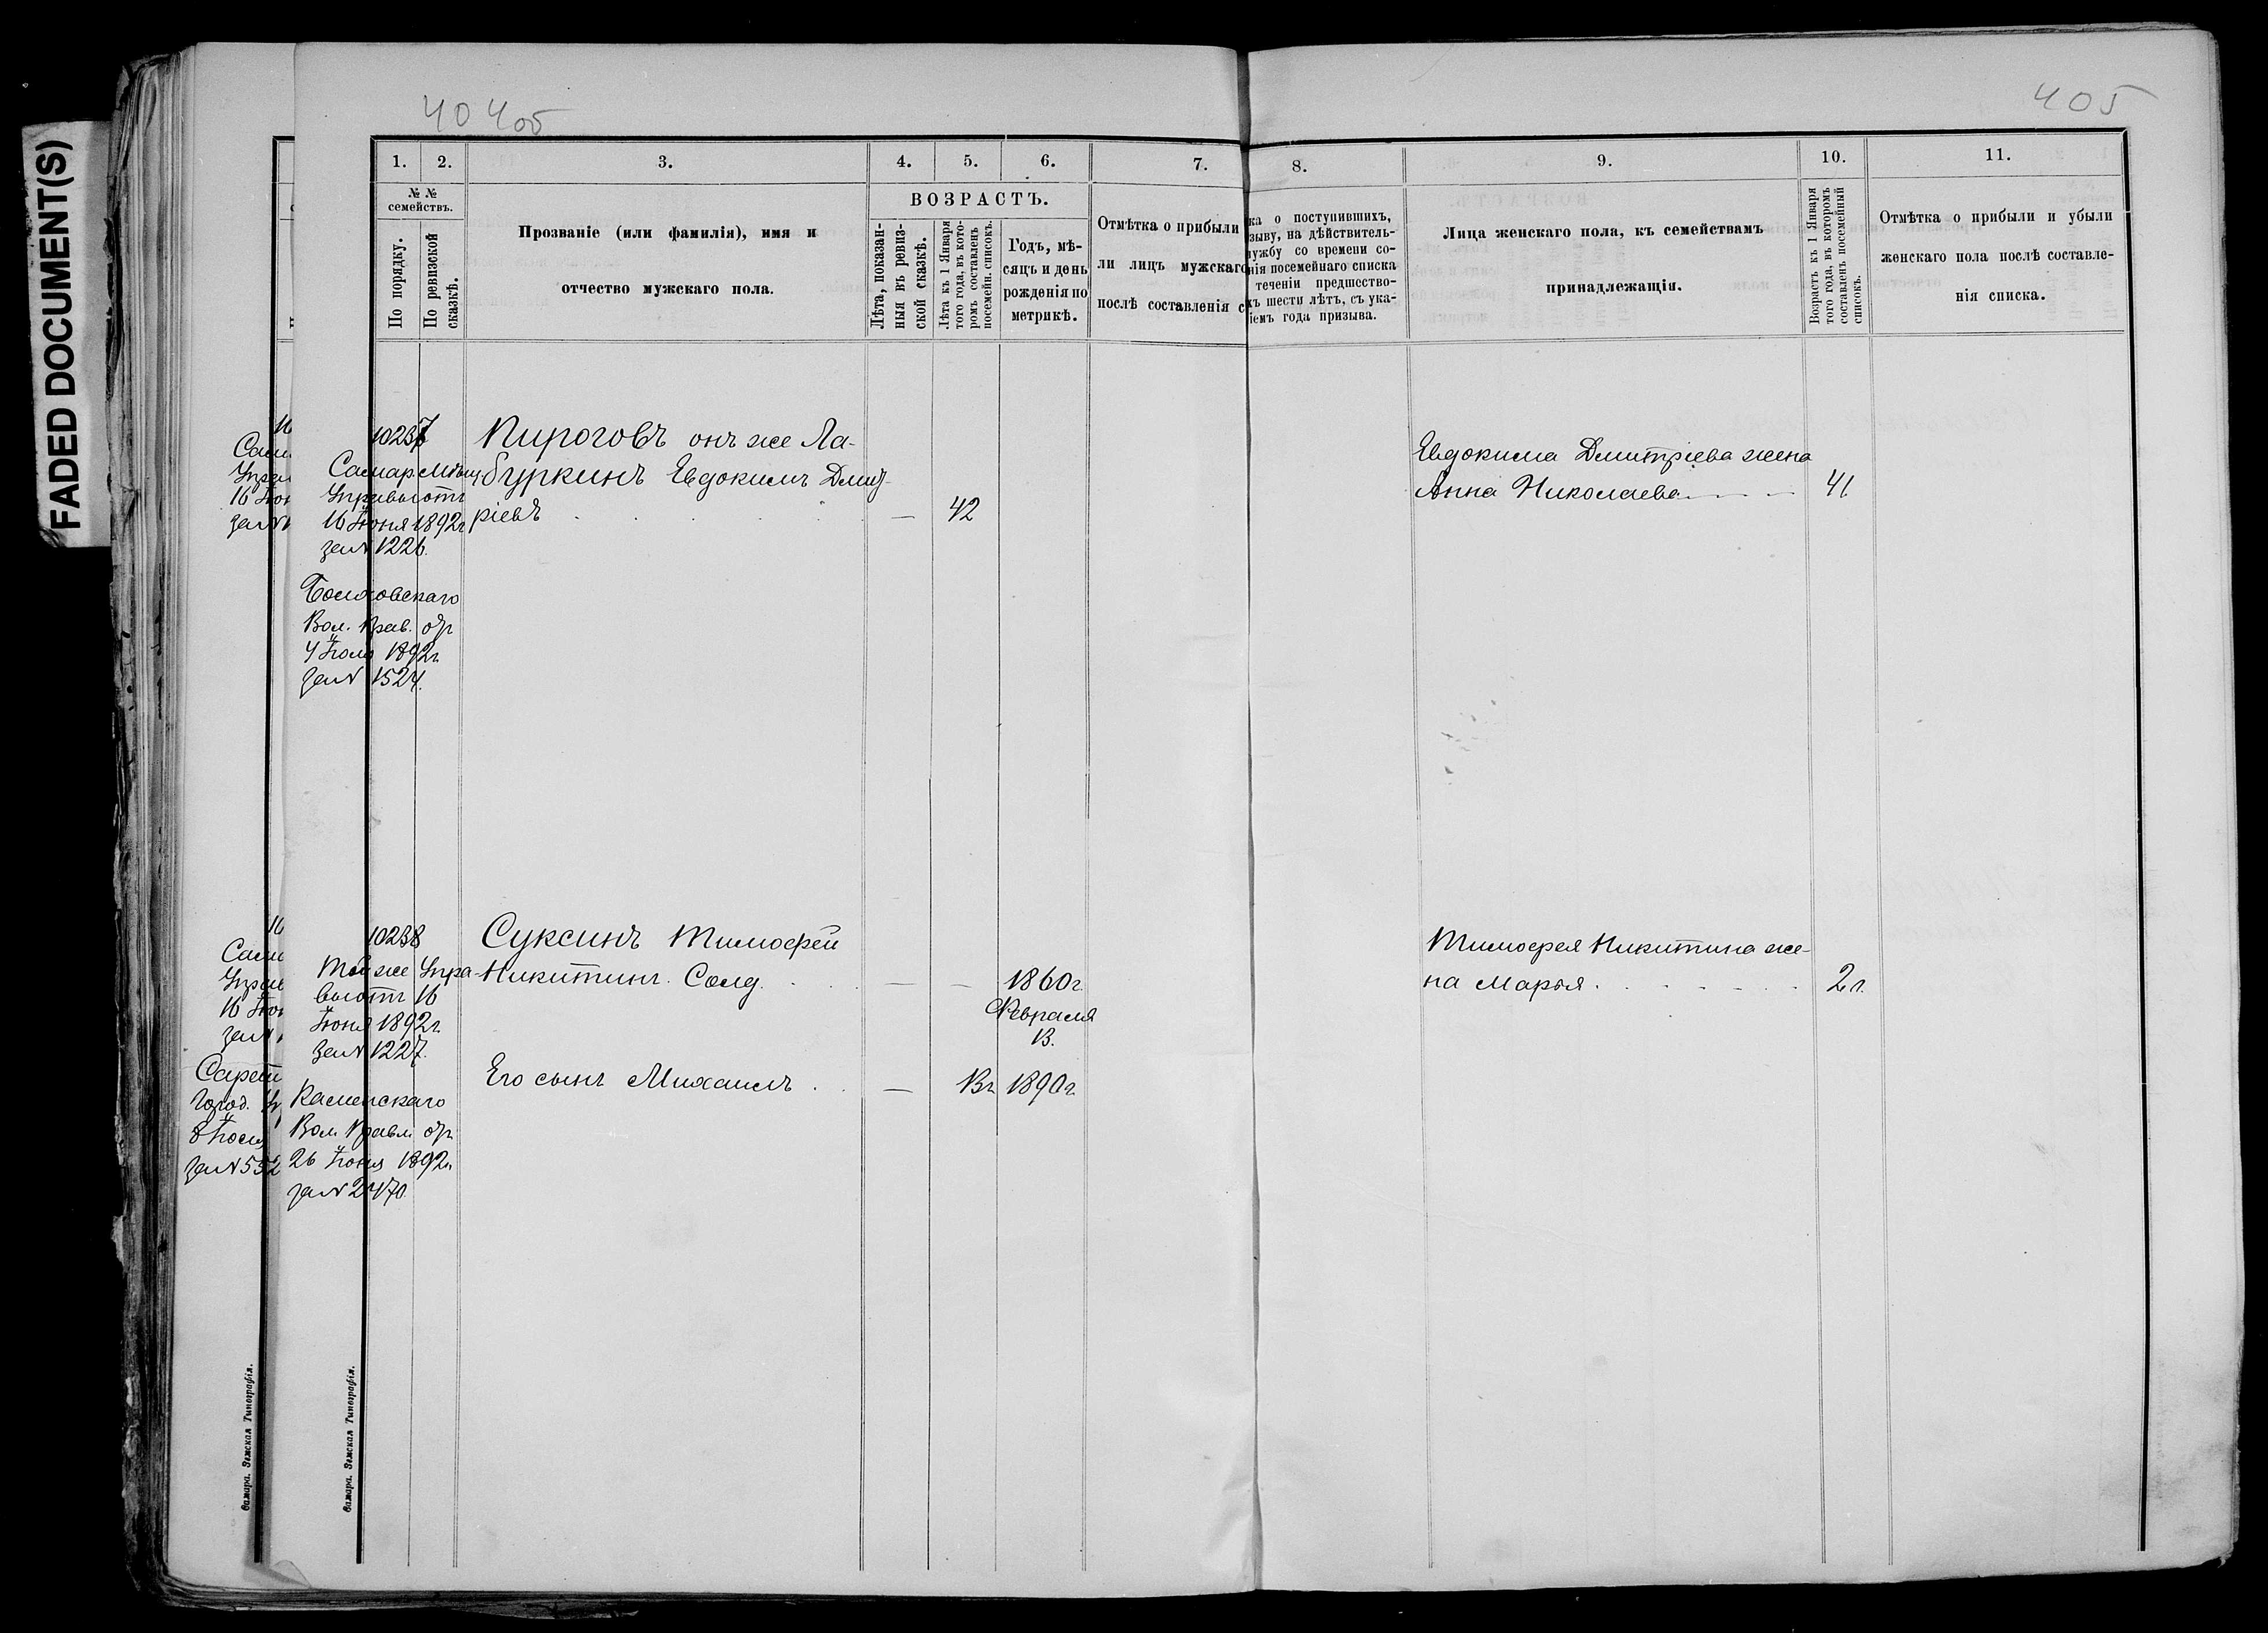 FADED DOCUMENT(S)
404об
405
1.
2.
3.
4.
5.
6.
7.
8.
9.
10.
11.
№ №
семействъ.
По порядку.
По ревизской
сказкѣ.
Прозваніе (или фамилія), имя и
отчество мужскаго пола.
ВОЗРАСТЪ.
Лѣта, показан-
ныя въ ревиз-
ской сказкѣ.
Лѣта къ 1 Января
того года, въ кото-
ромъ составленъ
посемейн. списокъ.
Годъ, мѣ-
сяцъ и день
рожденія по
метрикѣ.
Отмѣтка о прибыли
ли лицъ мужскаго
послѣ составленія с
ка о поступившихъ,
зыву, на дѣйствитель-
ужбу со времени со-
нія посемейнаго списка
теченіи предшество-
хъ шести лѣтъ, съ ука-
іемъ года призыва.
Лица женскаго пола, къ семействамъ
принадлежащія.
Возрастъ къ 1 Января
того года, въ которомъ
составленъ посемейный
списокъ.
Отмѣтка о прибыли и убыли
женскаго пола послѣ составле-
нія списка.
10237
Самар. Мѣщ
Управы отъ
16 Іюня 1892г
за № 1226.
Вол. Прав. отъ
1892г.
за № 1524.
Пироговъ онъ же Ла-
буркинъ Евдокимъ Дмит-
ріевъ
—
42
Евдокима Дмитріева жена
Анна Николаева
41
10238
Той же Упра-
вы отъ 16
Іюня 1892г.
за № 1227.
Каменскаго
Вол. Правл. отъ
26 Іюня 1892г.
за № 2470.
Суксинъ Тимофей
Никитинъ. Солд.
— —
1860г.
Февраля
13.
Его сынъ Михаилъ
—
1890г.
Тимофея Никитина же-
на Марья
16
16 Іюн
за №
16
16 Іюн
за №
Город.
за № 552
Самара. Земская Типографія.
Самара. Земская Типографія.